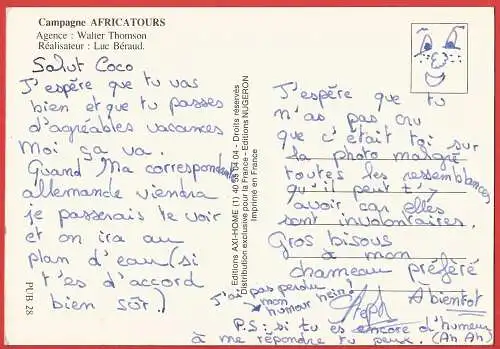 Campagne AFRICATOURS
Agence : Walter Thomson
Réalisateur : Luc Béraud.
Salut Coco
J'espère que tu vas
bien et que tu passes
d'agréables vacances
Moi ça va.
Quand Ma correspondante
allemande viendra
je passerais te voir
et on ira au
plan d'eau (si
t'es d'accord
bien sûr.)
PUB. 28
Editions AXI-HOME (1) 40 58 04 04 - Droits réservés
Distribution exclusive pour la France - Editions NUGERON
Imprimé en France
J'espère que tu
n'as pas cru
que c'était toi sur
la photo malgré
toutes les ressemblances
qu'il peut t'y
avoir car elles
sont involontaires.
Gros bisous
à mon
chameau préféré
A bientot
Steph
J'ai pas perdu
mon
humour hein!
P.S: si tu es encore d'humeur
à me répondre tu peux. (Ah Ah)